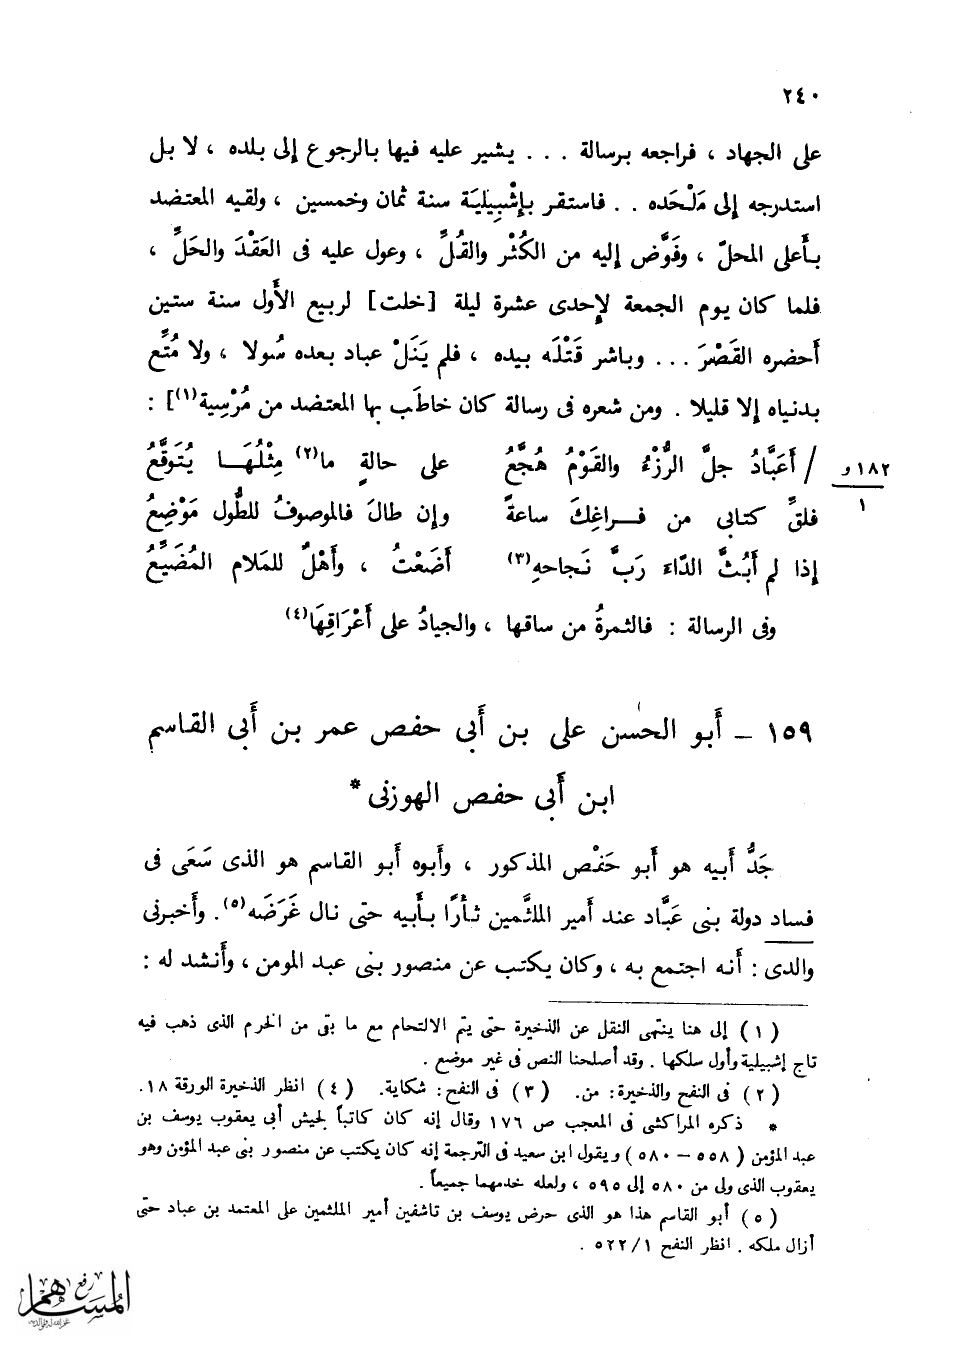 ٢٤٠
على الجهاد ، فراجعه برسالة . . . يشير عليه فيها بالرجوع إلى بلده ، لا بل
استدرجه إلى مَلْحَده . . فاستقر بإشْبِيليَة سنة ثمان وخمسين ، ولقيه المعتضد
بأَعلى المحلّ ، وفَوَّض إليه من الكُثْر والقُلِّ ، وعول عليه فى العَقْدَ والحَلِّ ،
فلما كان يوم الجمعة لإحدى عشرة ليلة [خلت] لربيع الأَول سنة ستين
أَحضره القَصْرَ . . . وباشر قَتْلَه بيده ، فلم يَنَلْ عباد بعده سُولا ، ولا مُتِّع
بدنياه إلا قليلا . ومن شعره فى رسالة كان خاطَب بها المعتضد من مُرْسِية(١)] :
١٨٢ و / أَعَبَّادُ جلَّ الرُّزْءُ والقَوْمُ هُجَّعُ على حالةٍ ما(٢) مِثْلُهَا يُتَوقَّعُ
١ فلقِّ كتابى من فراغِكَ ساعةً وإن طالَ فالموصوفُ للطُّول مَوْضِعُ
إذا لم أَبُثَّ الدّاءَ رَبَّ نَجاحهِ(٣) أَضَعْتُ ، وأَهْلٌ للمَلام المُضَيِّعُ
وفى الرسالة : فالثمرةُ من ساقها ، والجيادُ على أَعْرَاقِهَا(٤)
١٥٩ – أَبو الحسن على بن أَبى حفص عمر بن أَبى القاسم
ابن أَبى حفص الهوزنى *
جَدُّ أَبيه هو أَبو حَفْص المذكور ، وأَبوه أَبو القاسم هو الذى سَعَى فى
فساد دولة بنى عَبَّاد عند أَمير الملثَّمين ثأرًا بأَبيه حتى نال غَرَضَه(٥). وأَخبرنى
والدى : أَنه اجتمع به ، وكان يكتب عن منصور بنى عبد المومن ، وأَنشد له :
(١) إلى هنا ينتهى النقل عن الذخيرة حتى يتم الالتحام مع ما بقى من الخرم الذى ذهب فيه
تاج إشبيلية وأول سلكها . وقد أصلحنا النص فى غير موضع .
(٢) فى النفح والذخيرة: من. (٣) فى النفح: شكاية. (٤) انظر الذخيرة الورقة ١٨.
* ذكره المراكشى فى المعجب ص ١٧٦ وقال إنه كان كاتباً لجيش أبى يعقوب يوسف بن
عبد المؤمن (٥٥٨ – ٥٨٠) ويقول ابن سعيد فى الترجمة إنه كان يكتب عن منصور بنى عبد المؤمن وهو
يعقوب الذى ولى من ٥٨٠ إلى ٥٩٥ ، ولعله خدمهما جميعاً .
(٥) أبو القاسم هذا هو الذى حرض يوسف بن تاشفين أمير الملثمين على المعتمد بن عباد حتى
أزال ملكه . انظر النفح ٥٢٢/١ .
رفع
المساهم